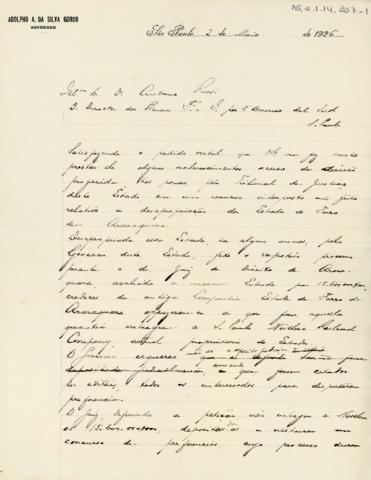 AG.2.1.14.267-1
ADOLPHO A. DA SILVA GORDO
ADVOGADO
São Paulo, 2 de Maio de 1926
Illmo Sr. Dr. Antonio Rossi
D. Director do Banco F. e I. per l'America del Sud
S. Paulo
Satisfazendo o pedido verbal que me fez
prestar-lhe alguns esclarecimentos acerca da decisão
proferida, ha pouco, pelo Tribunal de Justiça
deste Estado em um recurso interposto no feito
relativo a desapropriação da Estrada de Ferro
de Araraquara.
Desapropriada essa Estrada, ha alguns annos, pelo
Governo deste Estado, feito o respectivo processo
perante o de Juiz de Direito de Arara-
quara, avaliada a mesma Estrada por 15.600:000$000,
credores da antiga Companhia Estrada de Ferro de
Araraquara oppuzeram-se a que fosse aquella
quantia entregue a S. Paulo Northern Railroad
Company, actual proprietaria da Estrada
O Governo requereu
judicialmente, e que fossem citados
por editaes, todos os interessados para disputarem
preferencias.
O Juiz, deferindo a petição, não entregou á Northern
os 15.600:000$000, depositou-os e instaurou um
concurso de preferencias, cujo processo durou